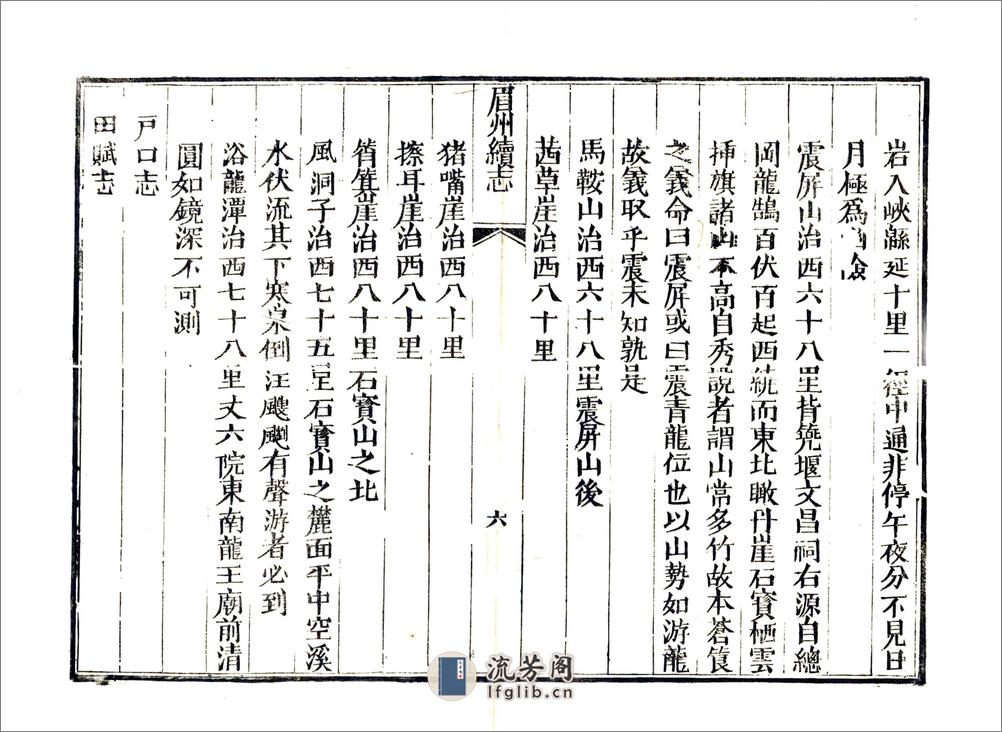 岩入峽緜延十里一徑中通非停午夜分不見日
月極爲險
震屏山治西六十八里背筧堰文昌祠右源自總
岡龍鵠百伏百起西統而東北瞰丹崖石寶栖雲
挿旗諸山不高自秀說者謂山常多竹故本蒼筤
之義命曰震屏或曰震青龍位也以山勢如游龍
故義取乎震未知孰是
馬鞍山治西六十八里震屏山後
茜草崖治西八十里
眉州續志
六
猪嘴崖治西八十里
擦耳崖治西八十里
筲箕崖治西八十里石寶山之北
風洞子治西七十五里石寶山之麓面平中空溪
水伏流其下寒泉倒汪颼飀有聲游者必到
浴龍潭治西七十八里丈六院東南龍王廟前清
圓如鏡深不可測
戸口志
田賦志
流芳阁
lfglib.cn